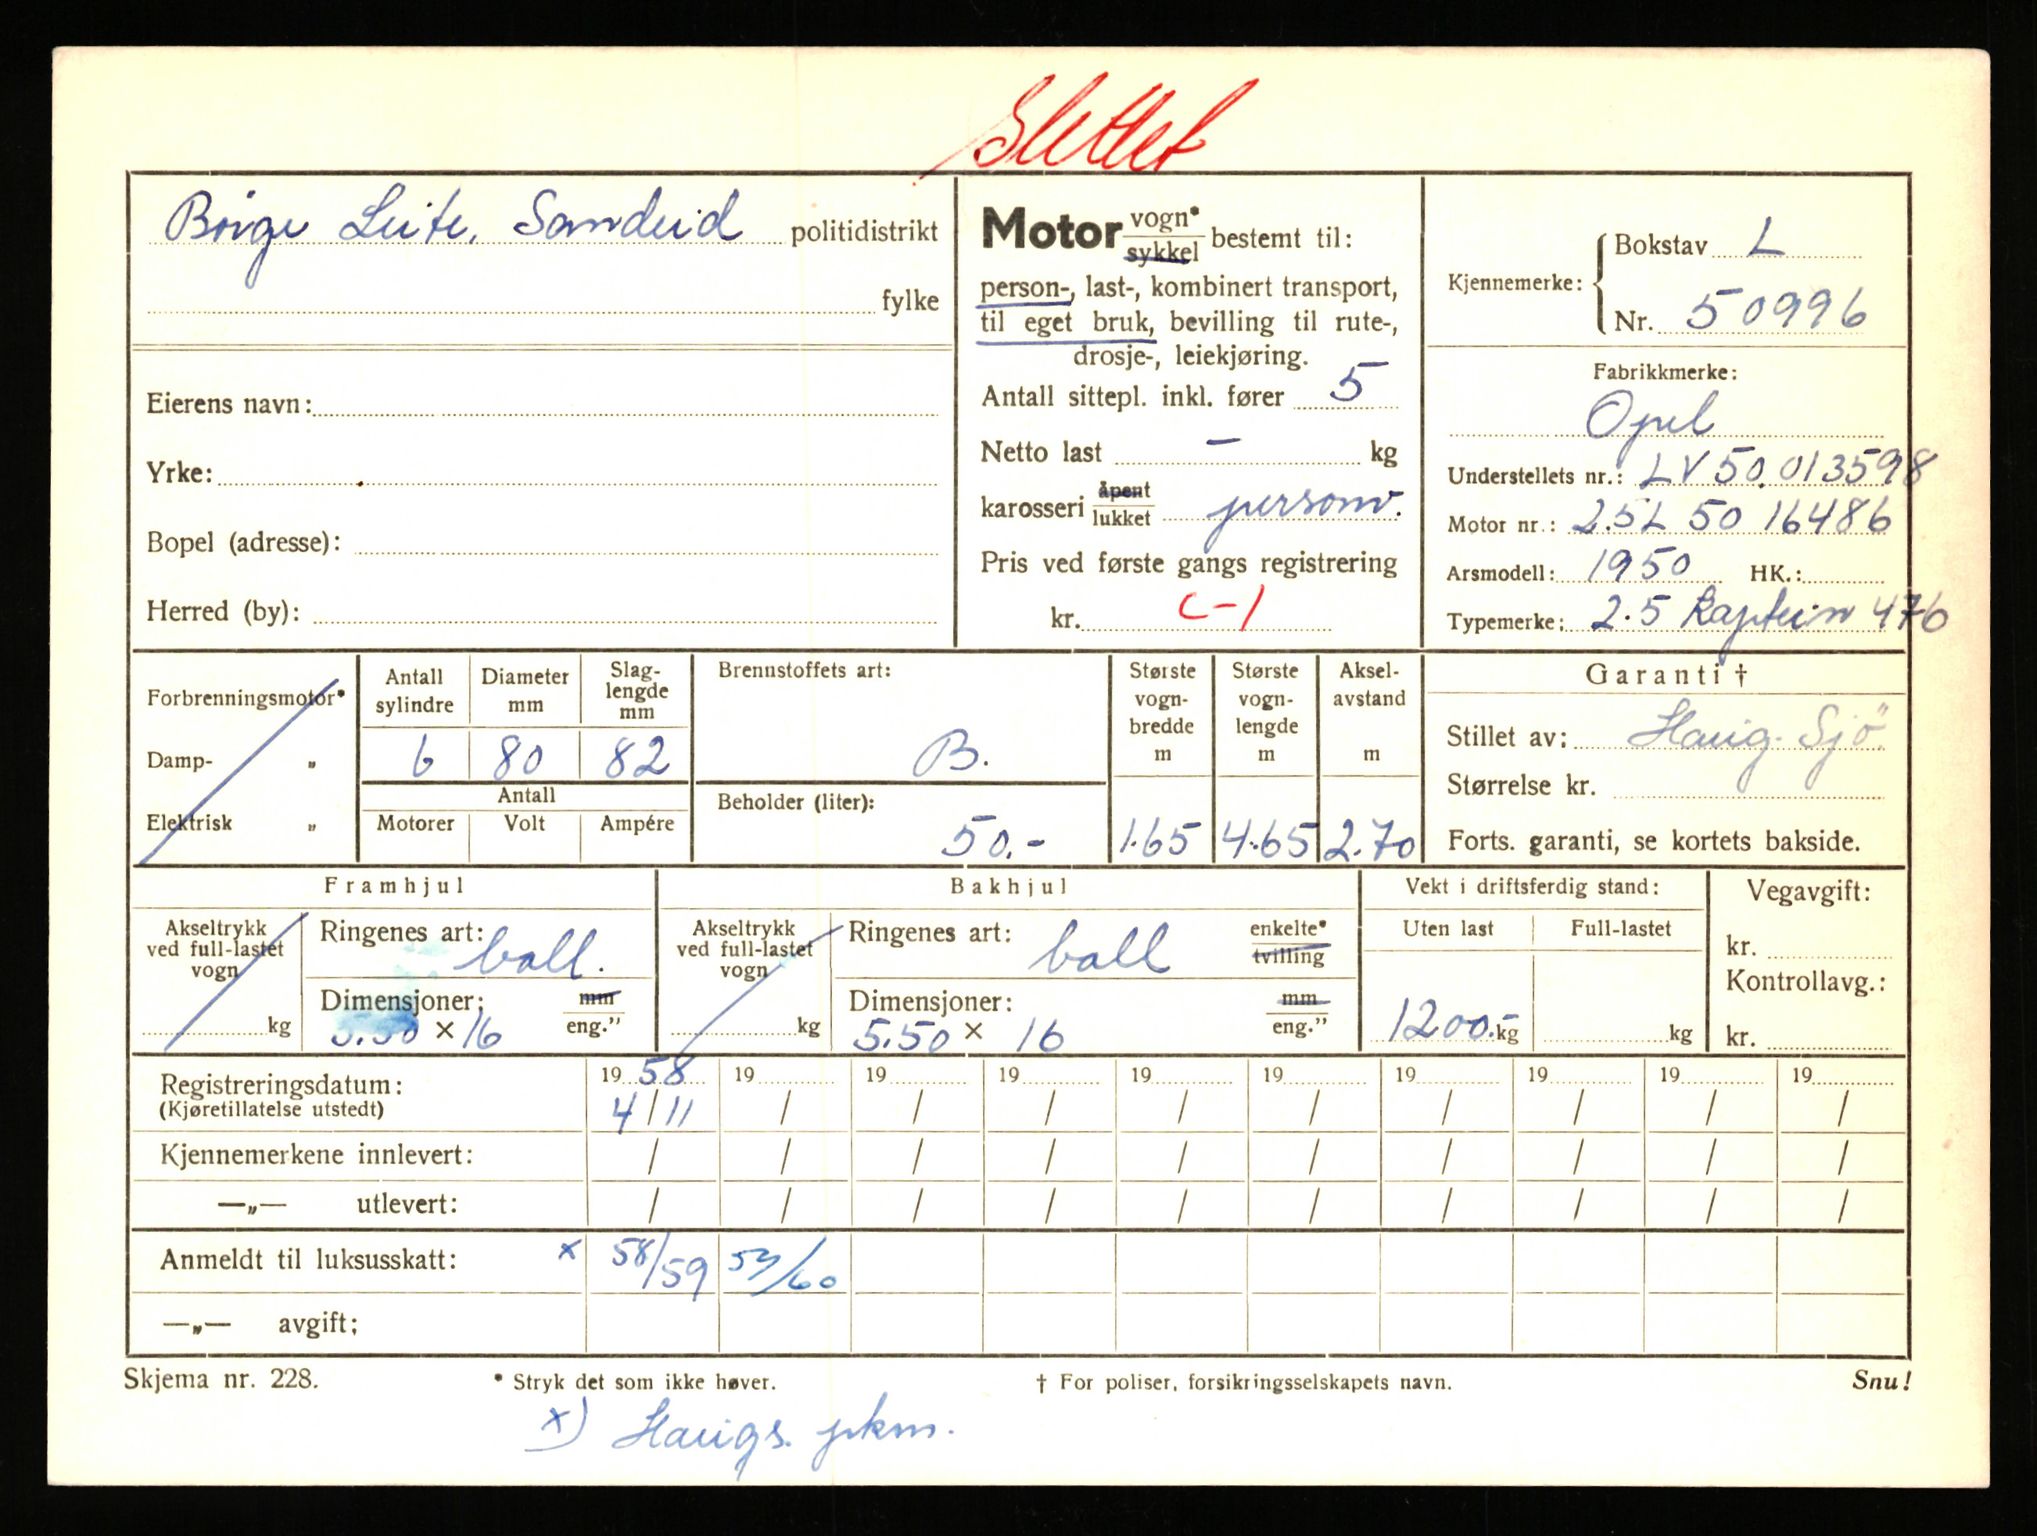 Slettet
Børge Leite, Sandeid politidistrikt
fylke
Eierens navn:
Yrke:
Bopel (adresse):
Herred (by):
Motor vogn* sykkel bestemt til:
person-, last-, kombinert transport,
til eget bruk, bevilling til rute-,
drosje-, leiekjøring.
Antall sittepl. inkl. fører 5
Netto last - kg
karosseri åpent lukket personv.
Pris ved første gangs registrering
kr. C-1
Kjennemerke: Bokstav L
Nr. 50996
Fabrikkmerke:
Opel
Understellets nr.: LV 50.013598
Motor nr.: 2.5L 50 16486
Arsmodell: 1950 HK.:
Typemerke: 2.5 Kaptein 476
Forbrenningsmotor*
Damp- „
Elektrisk „
Antall sylindre Diameter mm Slag-lengde mm
6 80 82
Antall
Motorer Volt Ampére
Brennstoffets art:
B.
Beholder (liter):
50.-
Største vogn-bredde m Største vogn-lengde m Aksel-avstand m
1.65 4.65 2.70
Garanti †
Stillet av: Haug. Sjö.
Størrelse kr.
Forts. garanti, se kortets bakside.
Framhjul
Akseltrykk ved full-lastet vogn
kg
Ringenes art: ball.
Dimensjoner: mm
5.50 × 16 eng.”
Bakhjul
Akseltrykk ved full-lastet vogn
kg
Ringenes art: ball enkelte* tvilling
Dimensjoner: mm
5.50 × 16 eng.”
Vekt i driftsferdig stand:
Uten last Full-lastet
1200.- kg kg
Vegavgift:
kr.
Kontrollavg.:
kr.
Registreringsdatum: 19 58 19 19 19 19 19 19 19 19 19
(Kjøretillatelse utstedt) 4/11 / / / / / / / / /
Kjennemerkene innlevert: / / / / / / / / / /
—„— utlevert: / / / / / / / / / /
Anmeldt til luksusskatt: x 58/59 59/60
—„— avgift;
Skjema nr. 228. * Stryk det som ikke høver. † For poliser, forsikringsselskapets navn. Snu!
x) Haugs. pkm.